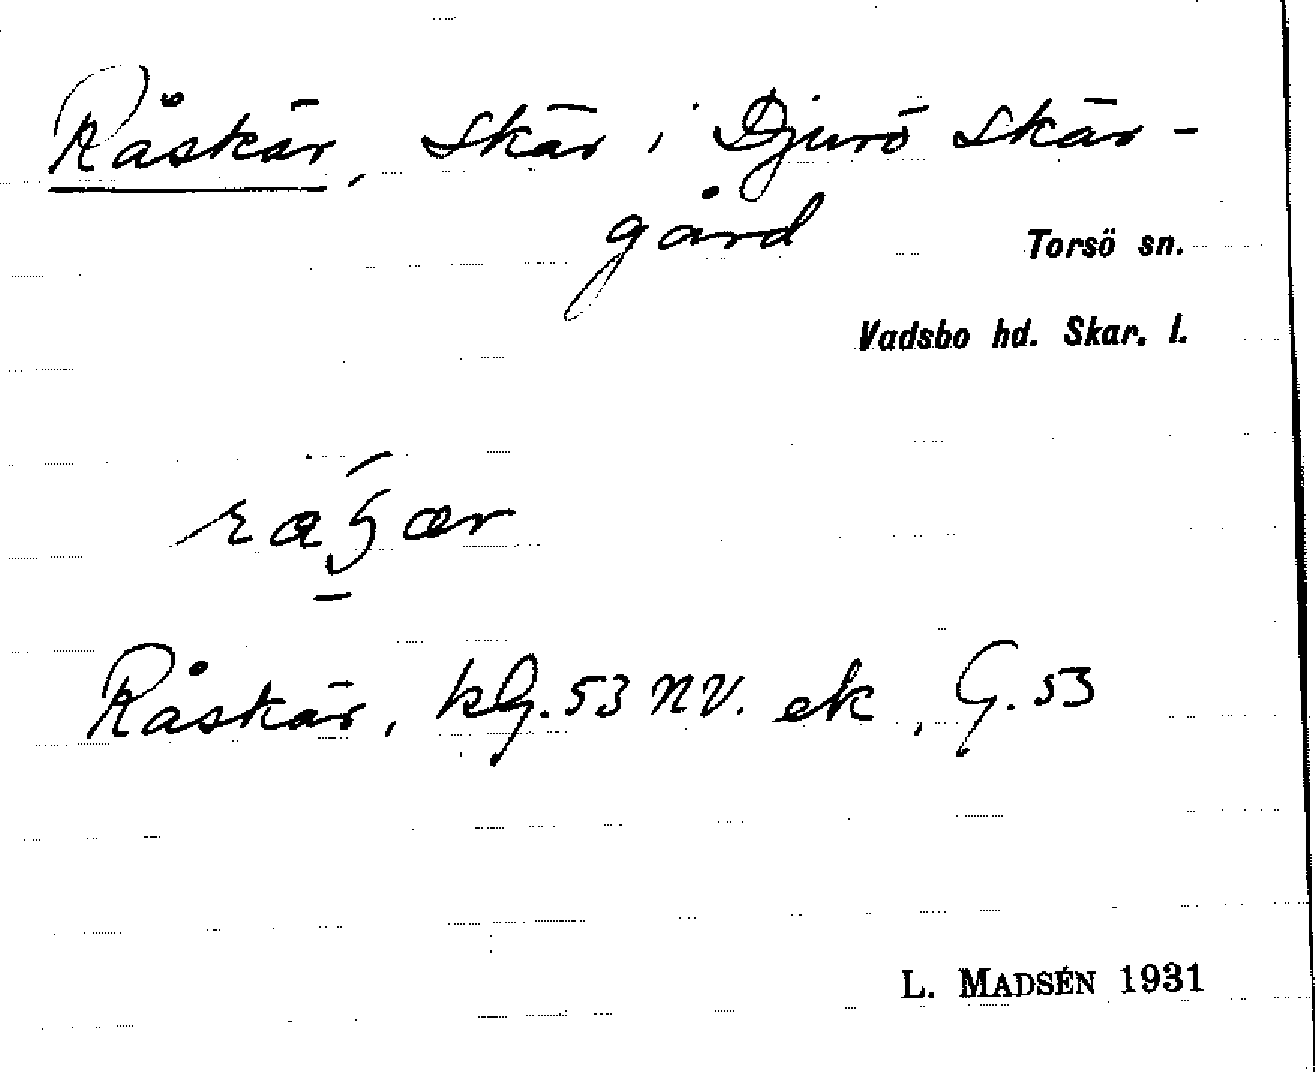 Råskär, skär i Djurö skär-
gård
Torsö sn.
Vadsbo hd. Skar. l.
Råskär, kG. 53 NV. ek, G. 53
L. MADSÉN 1931